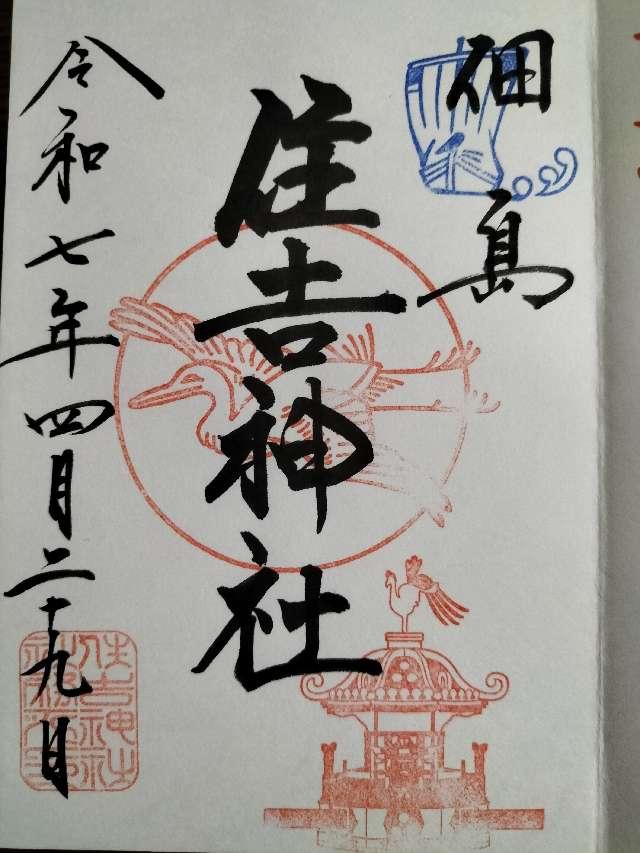 佃島
住吉神社
令和七年四月二十九日